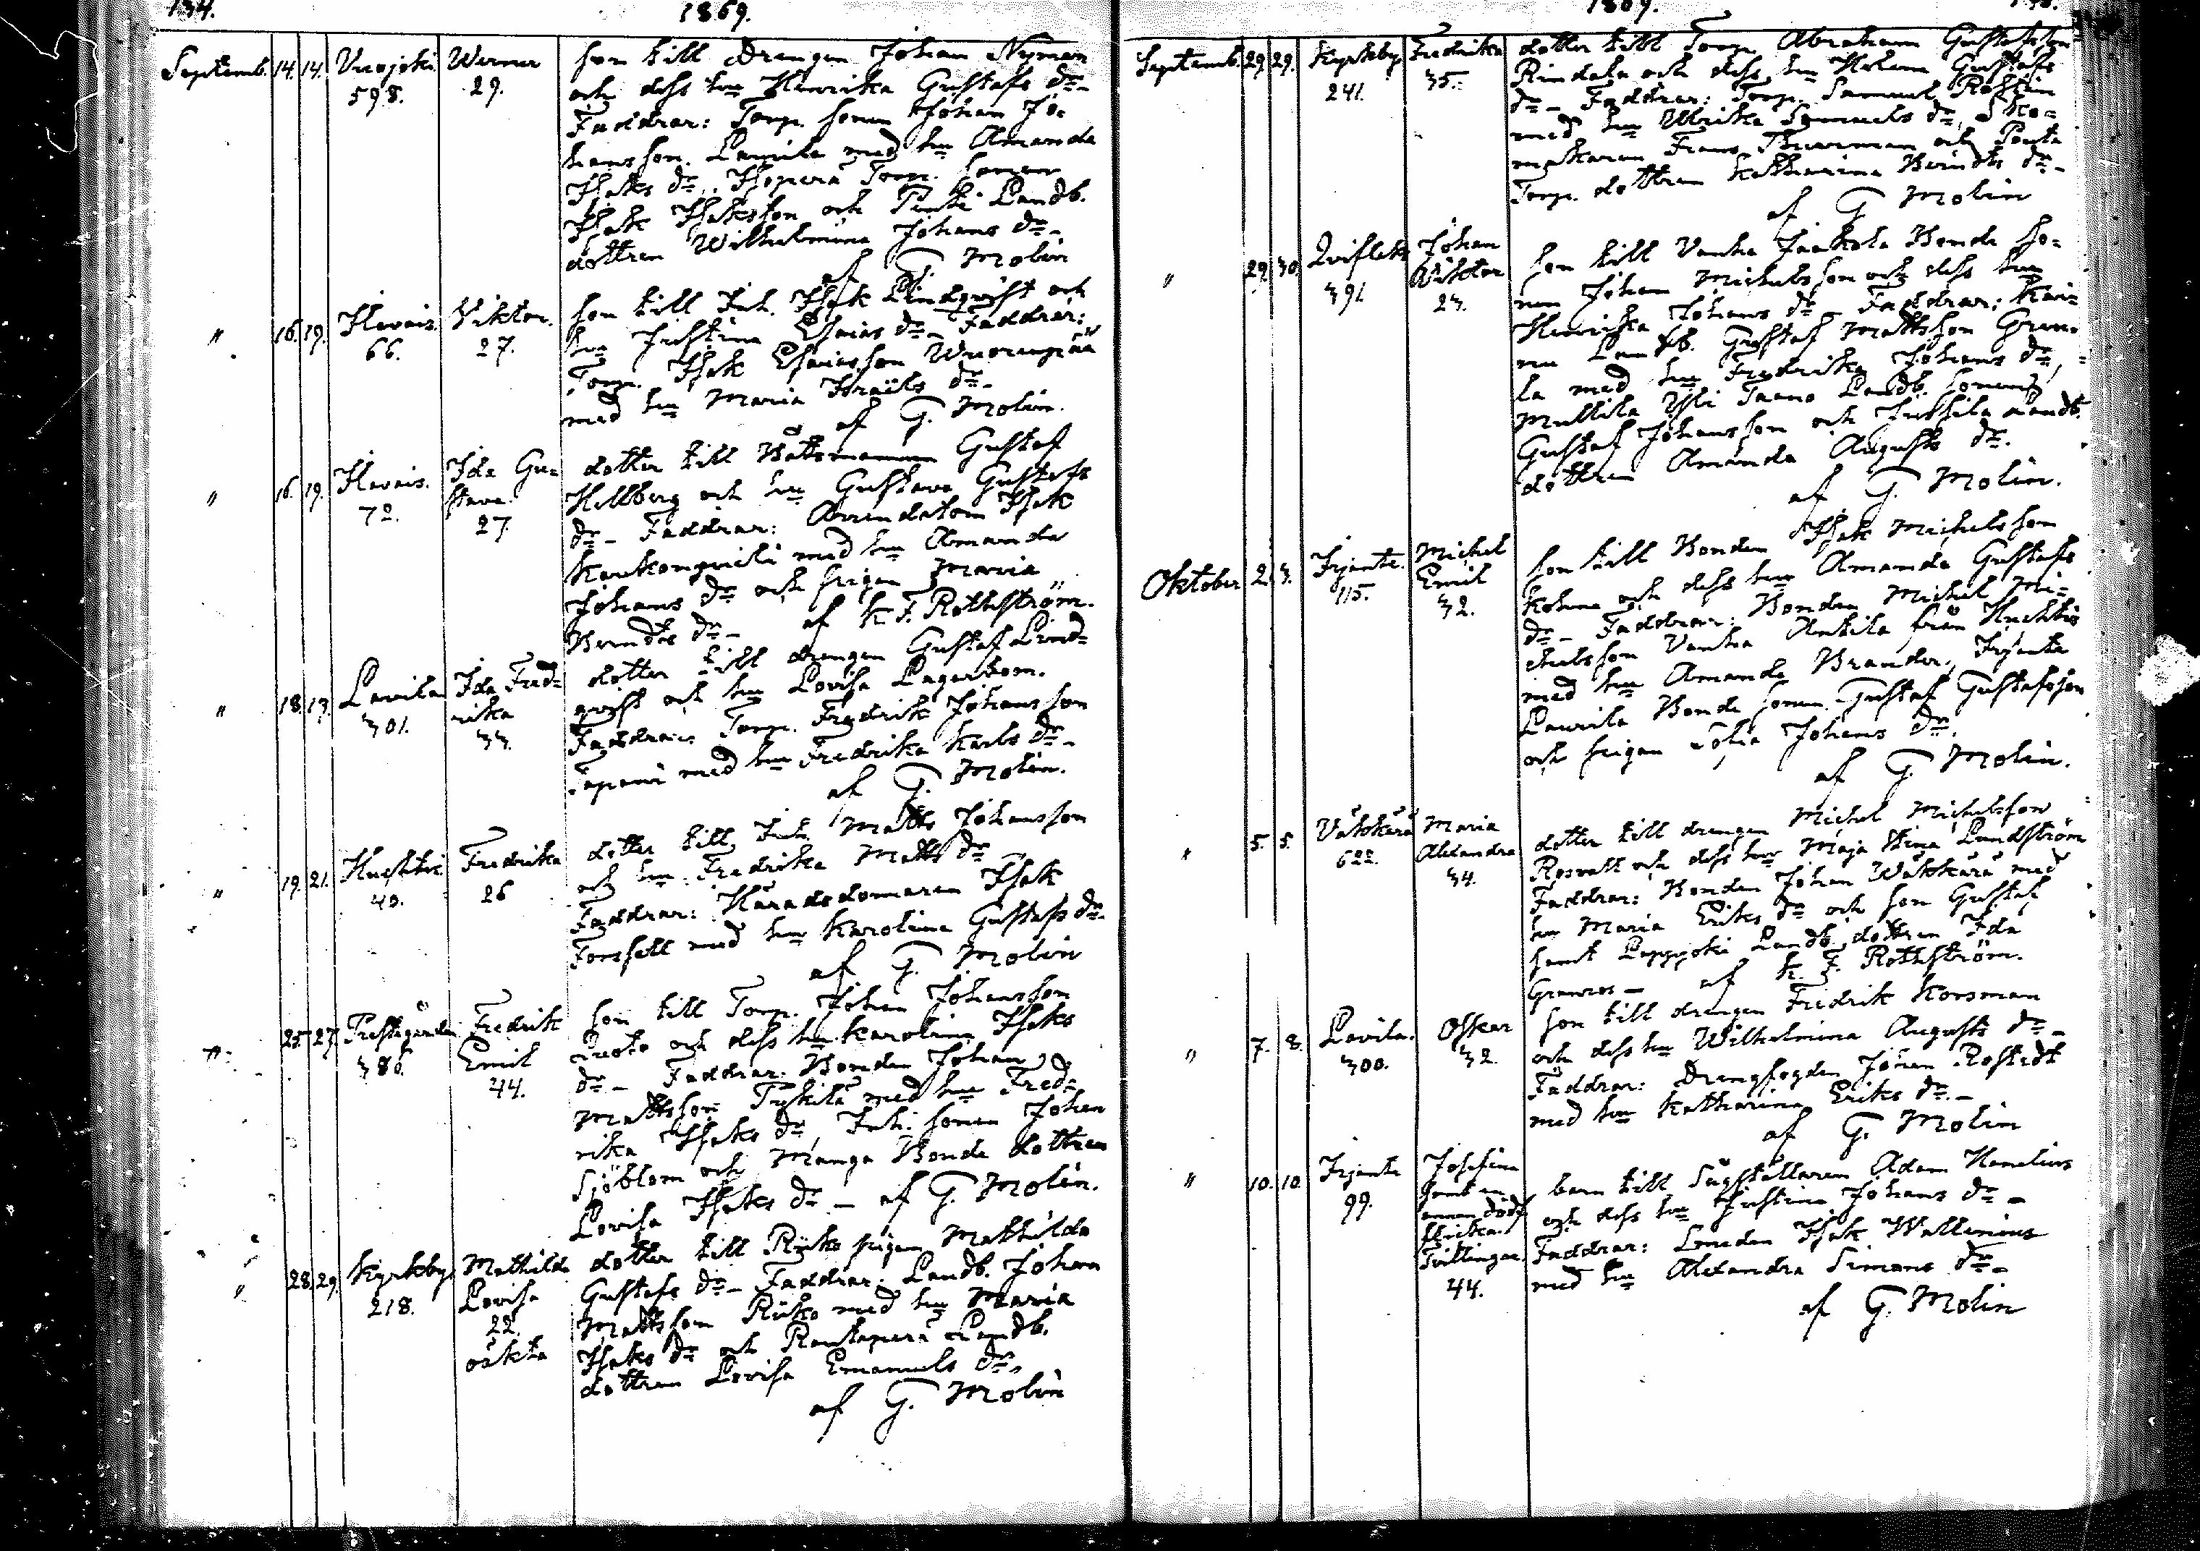 134.
1869.
Septemb. 14. 14. Vuojoki 598. Werner 29.
son till Drengen Johan Nyman
och dess hu Henrika Gustafs dr
Faddrar: Torp. sonen Johan Jo-
hansson Lavila med hu Amanda
Isaks dr, Torp. sonen
Isak Isaksson och Penti Landb.
dottren Wilhelmina Johans dr
af G Molin
" 16. 19. Hevais. 66. Viktor. 27.
son till Inh. Isak Lindqvist och
hu Justina Esaias dr Faddrar:
Torp. Isak Esaiasson Wuorenpää
med hu Maria Israels dr
af G. Molin.
" 16. 19. Hevais. 72. Ida Gu-
stava 27.
dotter till Båtsmannen Gustaf
Hellberg och hu Gustava Gustafs
dr Faddrar: Arrendatorn Isak
med hu Amanda
Johans dr och pigan Maria
dr af K. F. Rothström.
" 18. 19. Lavila 301. Ida Fred-
rika 33.
dotter till drengen Gustaf Lind-
qvist och hu Lovisa Lagerbom.
Faddrar: Torp. Fredrik Johansson
Tapani med hu Fredrika Karls dr
af G. Molin.
" 19. 21. Huchtis 40. Fredrika 26
dotter till Inh. Matts Johansson
och hu Fredrika Matts dr
Faddrar: Häradsdomaren Isak
Forssell med hu Karolina Gustafs dr
af G. Molin
" 25. 27. Prestegården 386. Fredrik
Emil 44.
son till Torp. Johan Johansson
och dess hu Karolina Isaks
dr Faddrar: Bonden Johan
Mattsson med hu Fred-
rika Isaks dr, Inh. sonen Johan
Sjöblom och Manga Bonde dottren
Lovisa Isaks dr af G. Molin.
" 28. 29. Kyrkby 218. Mathilda
Lovisa
22.
oäkta
dotter till Rijks pigan Mathilda
Gustafs dr Faddrar: Landb. Johan
Mattsson med hu Maria
Isaks dr och Rautaperä Landb.
dottren Lovisa Emanuels dr.
af G. Molin
1869.
Septemb. 29. 29. Kyrkby 241. Fredrika 35.
dotter till Torp. Abraham Gustafsson
Rindala och dess hu Helena Gustafs
dr Faddrar: Torp. Samuel
med hu Ulrika Samuels dr, Sko-
makaren Frans och Penta
Torp. dottren Katharina dr
af G Molin
" 29. 30. 391. Johan
Viktor 23.
son till Vanha Jaakola Bonde so-
nen Johan Michelsson och dess hu
Henrika Johans dr Faddrar:
Landb. Gustaf Mattsson
la med hu Fredrika Johans dr,
Landb. sonen
Gustaf Johansson och Landb.
dottren Amanda Augusts dr.
af G. Molin.
Oktober 2. 3. Irjante 115. Michel
Emil 32.
son till Bonden Isak Michelsson
och dess hu Amanda Gustafs
dr Faddrar: Bonden Michel Mi-
chelsson Vanha Anttila från Huchtis
med hu Amanda Brander, Irjante
Laurila Bonde sonen Gustaf Gustafsson
och pigan Sofia Johans dr.
af G. Molin.
" 5. 5. Väkkärä 622. Maria
Alexandra 34.
dotter till drengen Michel Michelsson
Rosvall och dess hu Maja Stina Lundström
Faddrar: Bonden Johan Wäkkärä med
hu Maria Eriks dr och son Gustaf
samt Landb. dottren Ida
af K. F. Rothström.
" 7. 8. Lavila 300. Oskar 32.
son till drengen Fredrik Korsman
och dess hu Wilhelmina Augusts dr
Faddrar: Drengfogden Johan Rostedt
med hu Katharina Eriks dr.
af G. Molin
" 10. 10. Irjante 99. Josefina
samt en
annan död
flicka
Tvillingar
44.
barn till Adam Henelius
och dess hu Justina Johans dr
Faddrar: Isak Wallenius
med hu Alexandra Simons dr
af G. Molin